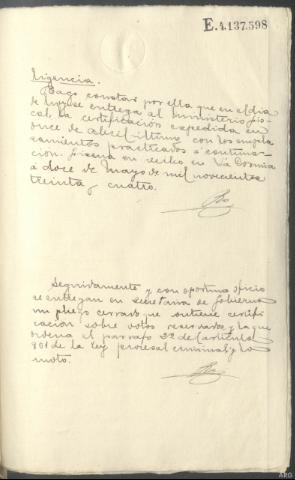 E.4.137.598
Diligencia.
Hago constar por ella que en el dia
de hoy se entrega al Ministerio fis-
cal, la certificación expedida en
once de abril último con los empla-
zamientos practicados a continua-
ción. firma en recibo en
a doce de mayo de mil novecientos
treinta y cuatro.
Seguidamente y con oportuno oficio
se entregan en secretaria de Gobierno
un pliego cerrado que contiene certifi-
cacion sobre votos reservados y la que
ordena el parrafo 2º del articulo
861 de la ley procesal criminal y lo
anoto.